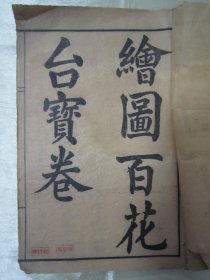 繪圖百花
台寶卷